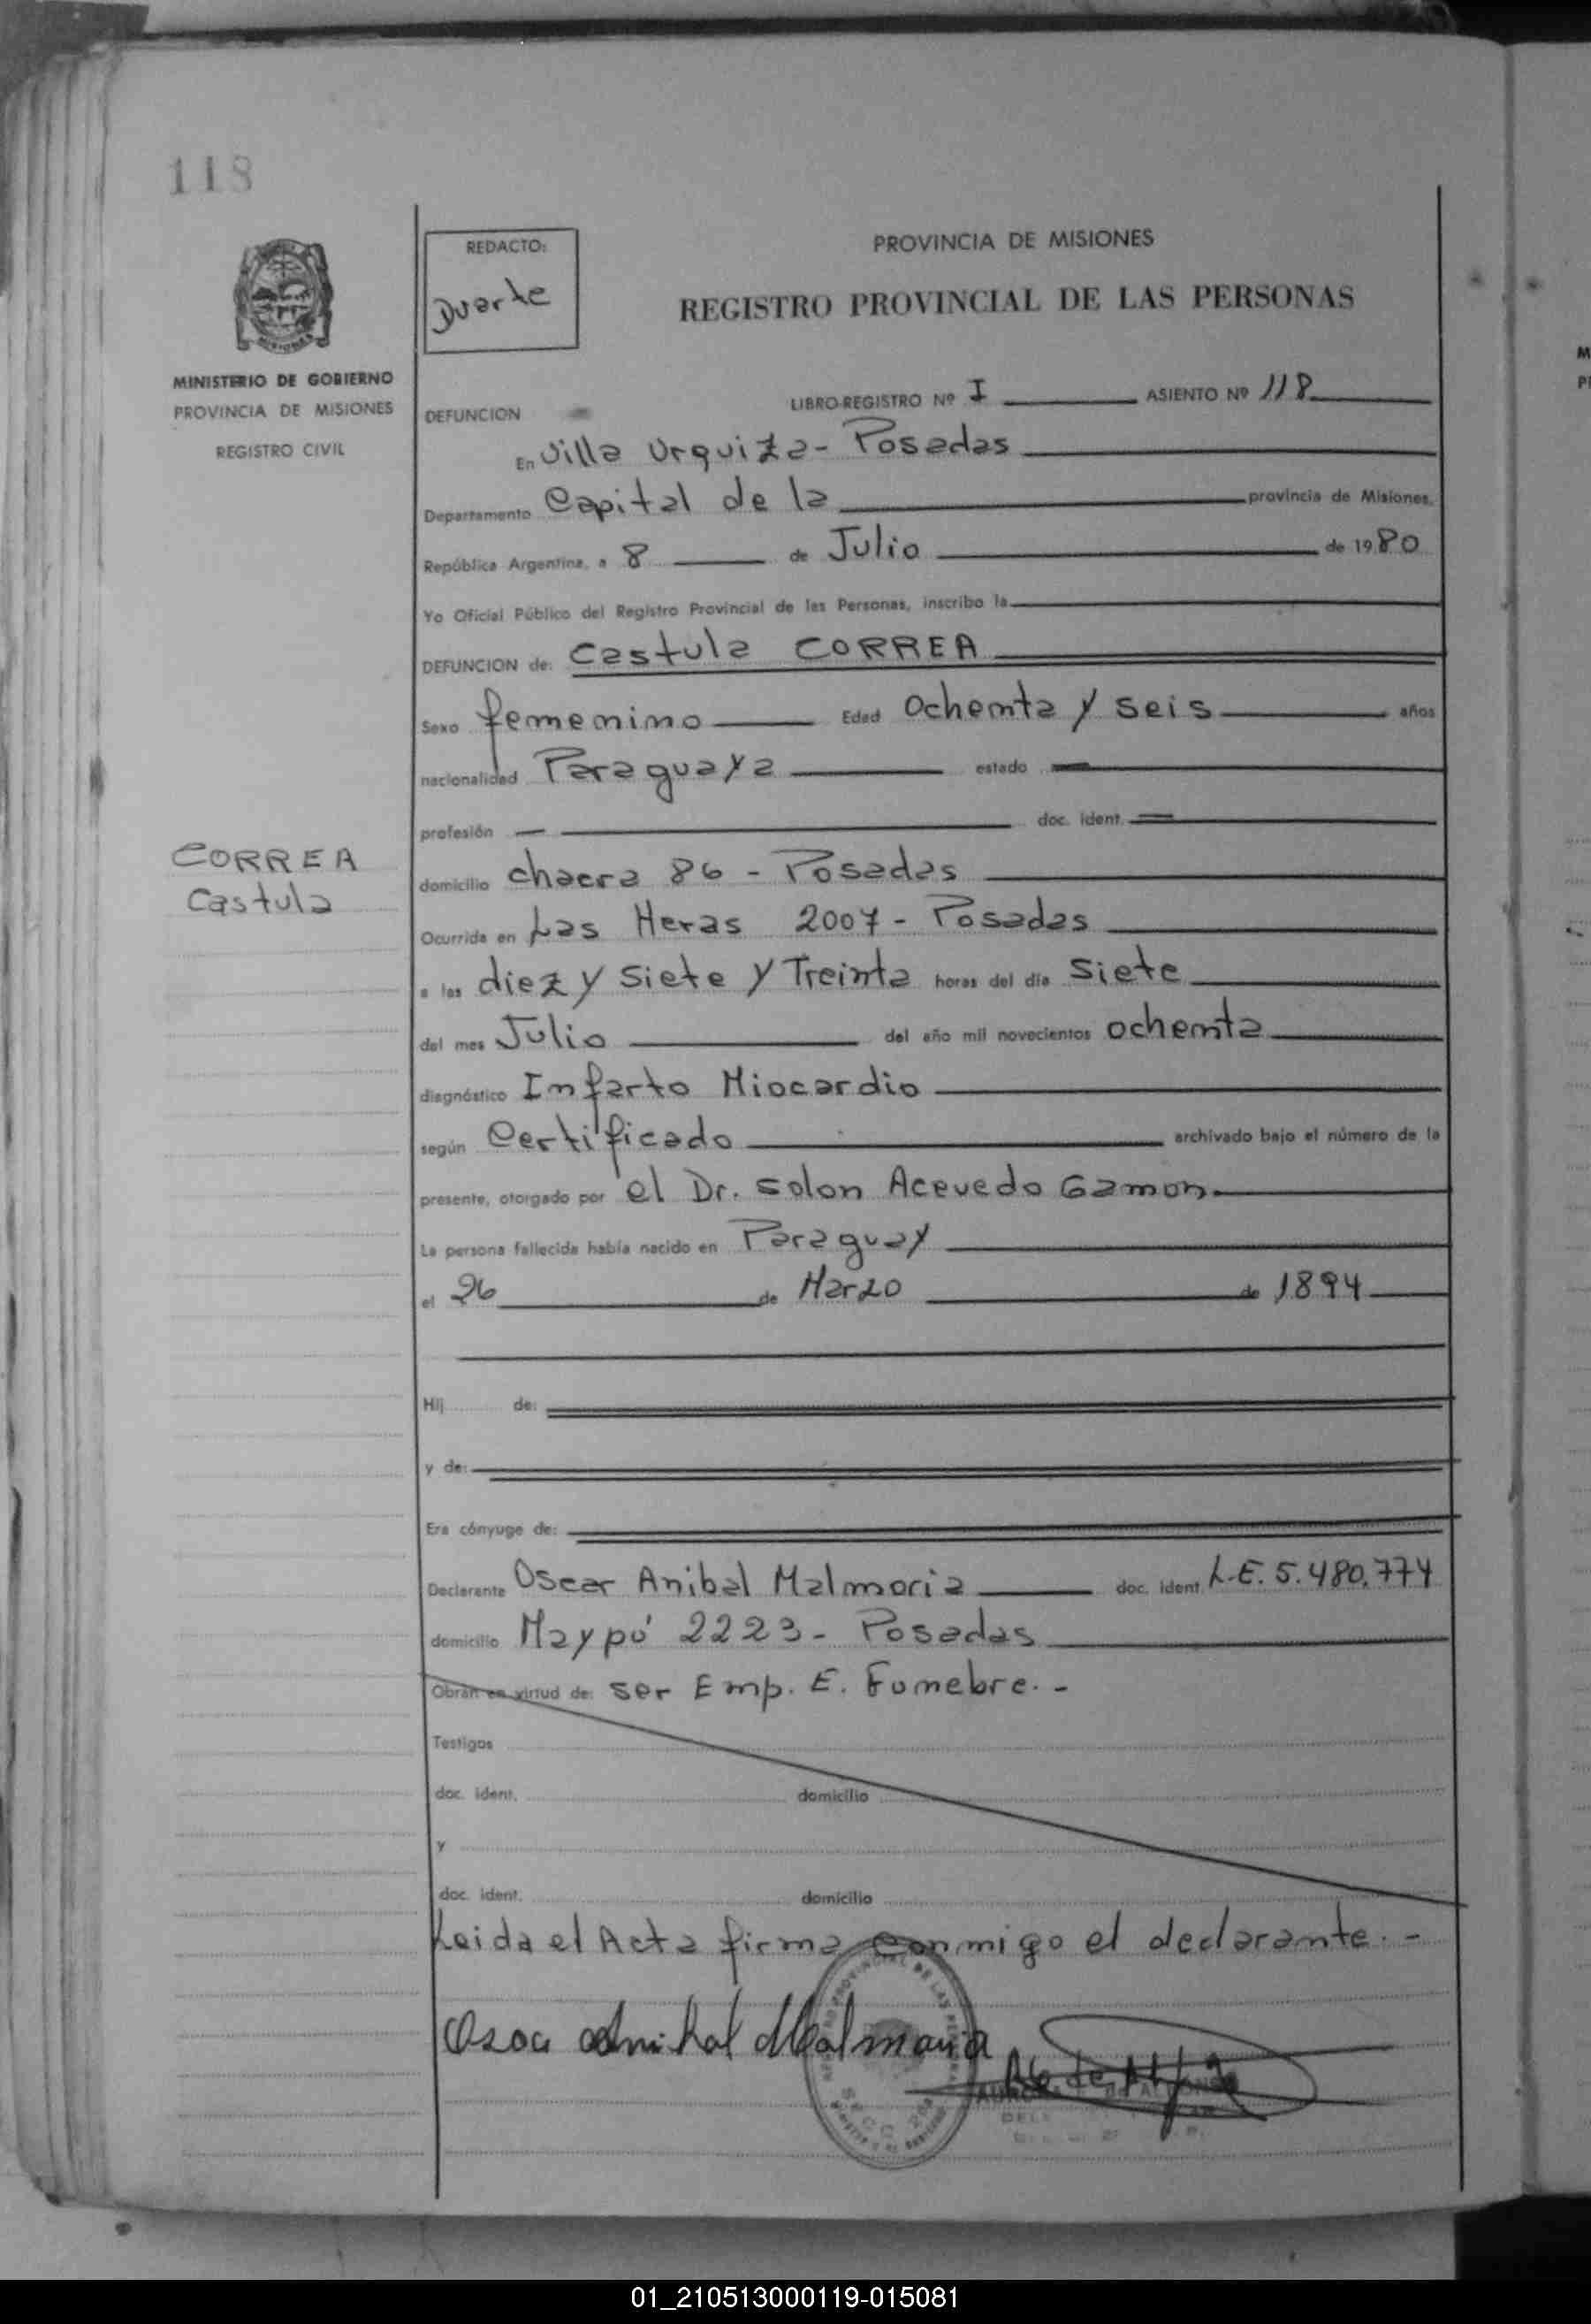 118
REDACTO:
Duarte
PROVINCIA DE MISIONES
REGISTRO PROVINCIAL DE LAS PERSONAS
MINISTERIO DE GOBIERNO
PROVINCIA DE MISIONES
REGISTRO CIVIL
DEFUNCION LIBRO-REGISTRO Nº I ASIENTO Nº 118
En Villa Urquiza - Posadas
Departamento Capital de la provincia de Misiones.
República Argentina, a 8 de Julio de 1980
Yo Oficial Público del Registro Provincial de las Personas, inscribo la
DEFUNCION de: Castula CORREA
Sexo femenino Edad Ochenta y seis años
nacionalidad Paraguaya estado —
profesión — doc. ident. —
CORREA
Castula
domicilio chacra 86 - Posadas
Ocurrida en Las Heras 2007 - Posadas
a las diez y siete y Treinta horas del día siete
del mes Julio del año mil novecientos ochenta
diagnóstico Infarto Miocardio
según Certificado archivado bajo el número de la
presente, otorgado por el Dr. Solon Acevedo Gamon
La persona fallecida había nacido en Paraguay
el 26 de Marzo de 1894
Hij de:
y de:
Era cónyuge de:
Declarante Oscar Anibal Malmoria doc. ident. L.E. 5.480.774
domicilio Maypú 2223 - Posadas
Obran en virtud de: ser Emp. E. Funebre. -
Testigos
doc. ident. domicilio
y
doc. ident. domicilio
Leida el Acta firma conmigo el declarante. -
Oscar Anibal Malmoria
01_210513000119-015081